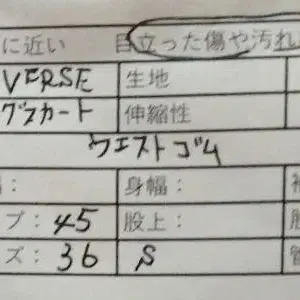 に近い 目立った傷や汚れ
VERSE 生地
グスカート 伸縮性
ウエストゴム
： 身幅：
プ：45 股上：
ズ：36 S